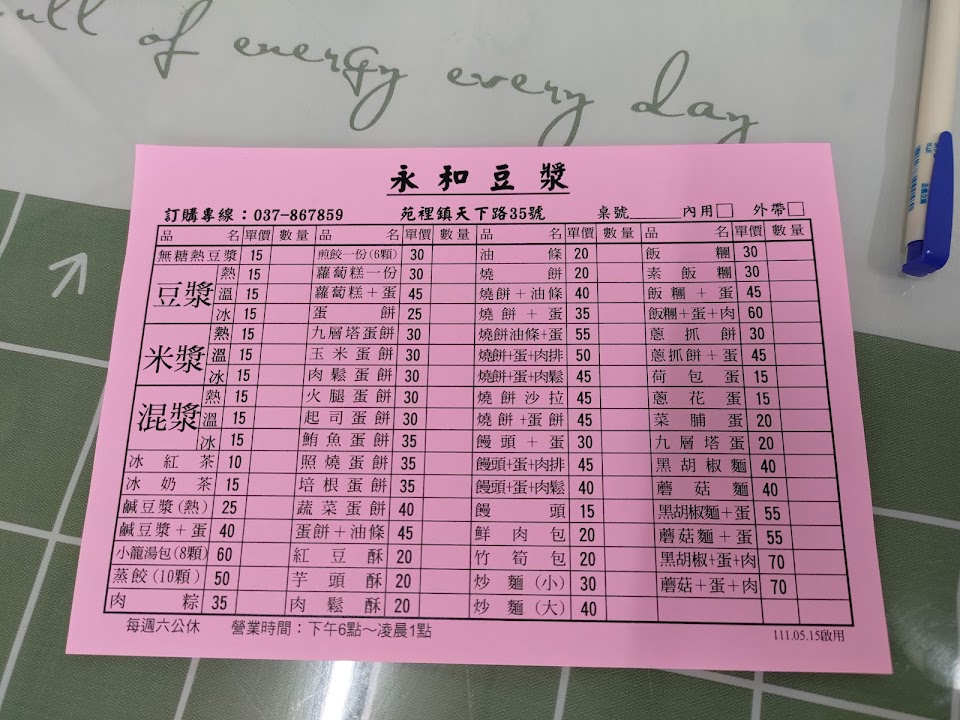 full of energy every day
永和豆漿
訂購專線：037-867859 苑裡鎮天下路35號 桌號______內用□ 外帶□
品名 單價 數量 品名 單價 數量 品名 單價 數量 品名 單價 數量
無糖熱豆漿 15 煎餃一份(6顆) 30 油條 20 飯糰 30
豆漿 熱 15 蘿蔔糕一份 30 燒餅 20 素飯糰 30
溫 15 蘿蔔糕+蛋 45 燒餅+油條 40 飯糰+蛋 45
冰 15 蛋餅 25 燒餅+蛋 35 飯糰+蛋+肉 60
米漿 熱 15 九層塔蛋餅 30 燒餅油條+蛋 55 蔥抓餅 30
溫 15 玉米蛋餅 30 燒餅+蛋+肉排 50 蔥抓餅+蛋 45
冰 15 肉鬆蛋餅 30 燒餅+蛋+肉鬆 45 荷包蛋 15
混漿 熱 15 火腿蛋餅 30 燒餅沙拉 45 蔥花蛋 15
溫 15 起司蛋餅 30 燒餅+蛋餅 45 菜脯蛋 20
冰 15 鮪魚蛋餅 35 饅頭+蛋 30 九層塔蛋 20
冰紅茶 10 照燒蛋餅 35 饅頭+蛋+肉排 45 黑胡椒麵 40
冰奶茶 15 培根蛋餅 35 饅頭+蛋+肉鬆 40 蘑菇麵 40
鹹豆漿(熱) 25 蔬菜蛋餅 40 饅頭 15 黑胡椒麵+蛋 55
鹹豆漿+蛋 40 蛋餅+油條 45 鮮肉包 20 蘑菇麵+蛋 55
小籠湯包(8顆) 60 紅豆酥 20 竹筍包 20 黑胡椒+蛋+肉 70
蒸餃(10顆) 50 芋頭酥 20 炒麵(小) 30 蘑菇+蛋+肉 70
肉粽 35 肉鬆酥 20 炒麵(大) 40
每週六公休 營業時間：下午6點～凌晨1點 111.05.15啟用